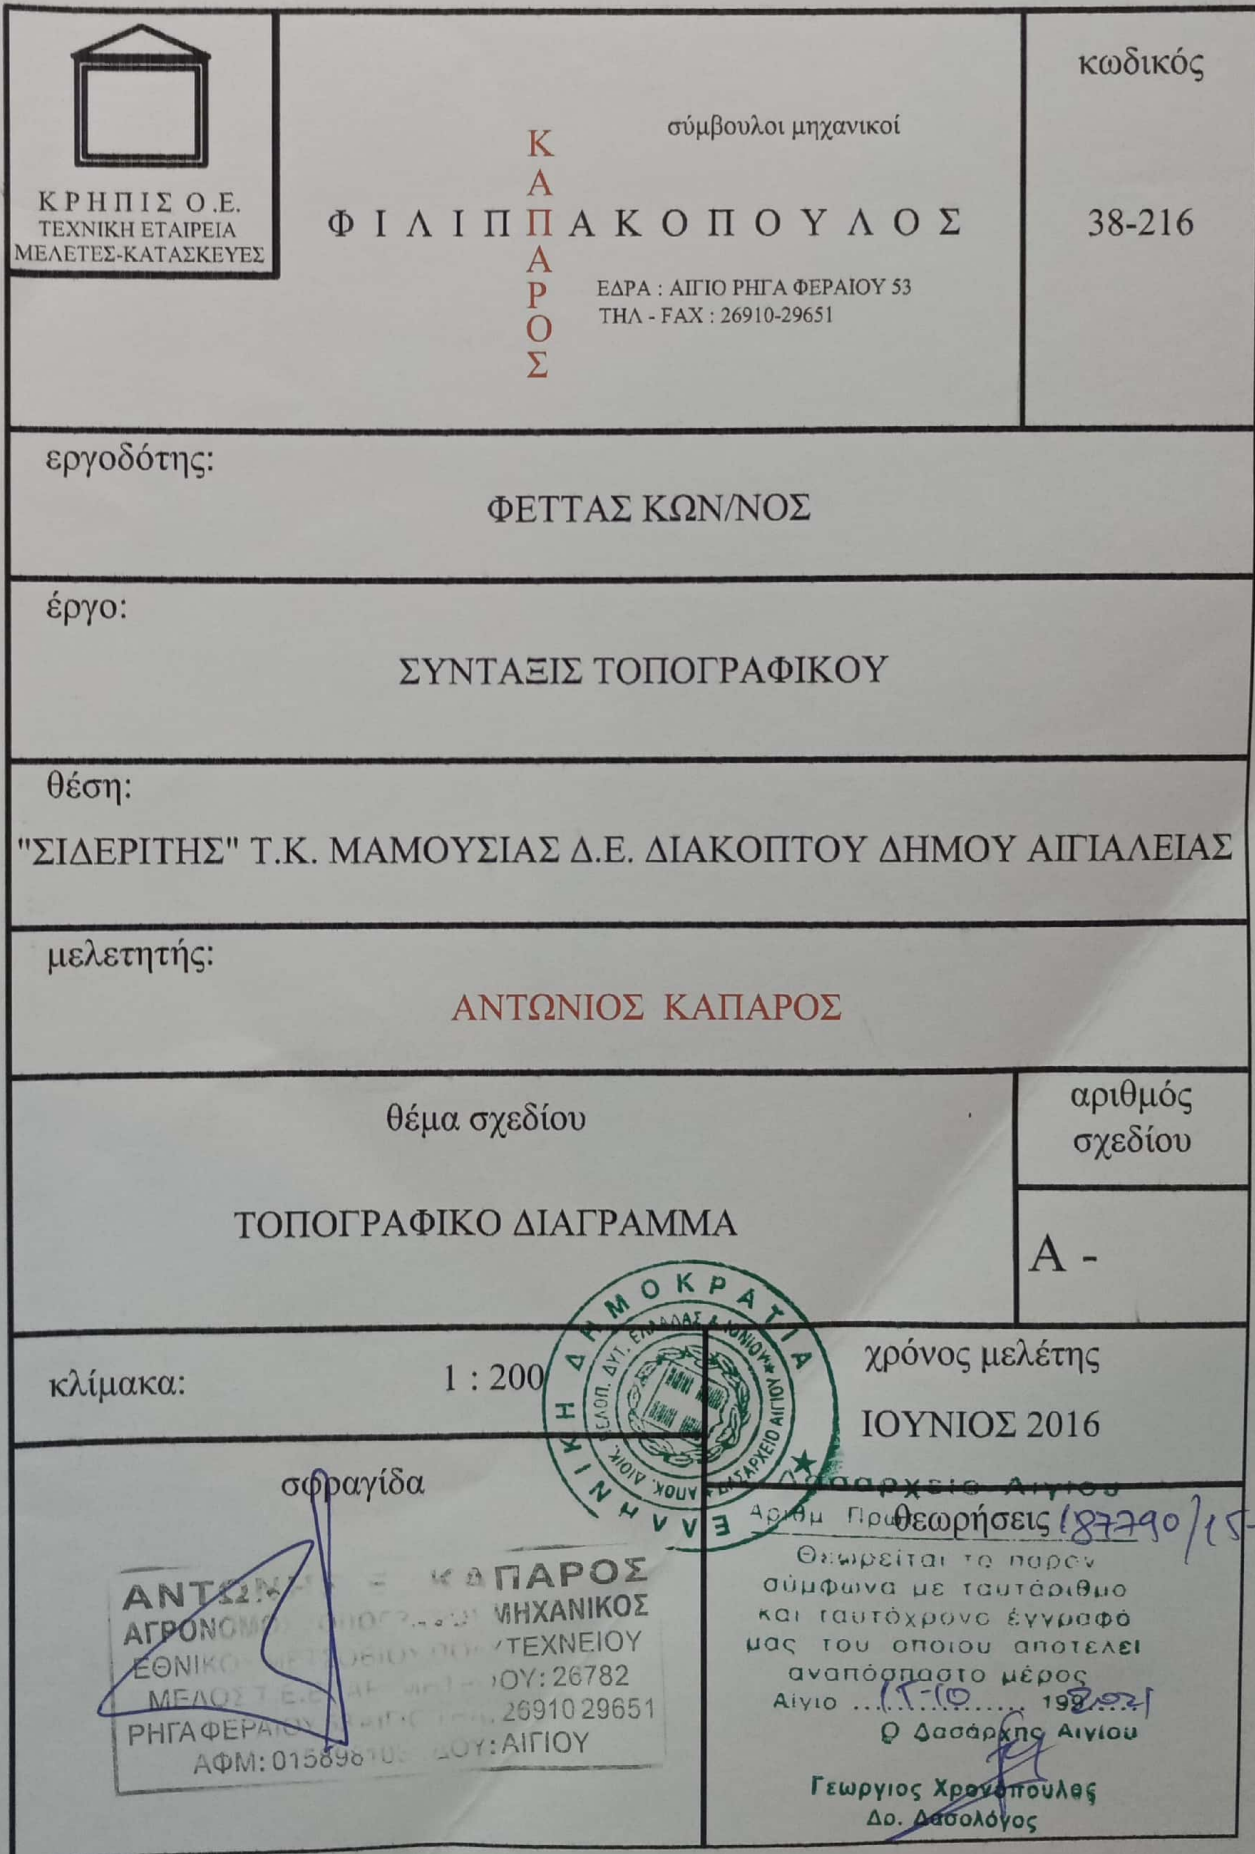 ΚΡΗΠΙΣ Ο.Ε.
ΤΕΧΝΙΚΗ ΕΤΑΙΡΕΙΑ
ΜΕΛΕΤΕΣ-ΚΑΤΑΣΚΕΥΕΣ
σύμβουλοι μηχανικοί
ΦΙΛΙΠΠΑΚΟΠΟΥΛΟΣ
ΚΑΠΑΡΟΣ
ΕΔΡΑ : ΑΙΓΙΟ ΡΗΓΑ ΦΕΡΑΙΟΥ 53
ΤΗΛ - FAX : 26910-29651
κωδικός
38-216
εργοδότης:
ΦΕΤΤΑΣ ΚΩΝ/ΝΟΣ
έργο:
ΣΥΝΤΑΞΙΣ ΤΟΠΟΓΡΑΦΙΚΟΥ
θέση:
"ΣΙΔΕΡΙΤΗΣ" Τ.Κ. ΜΑΜΟΥΣΙΑΣ Δ.Ε. ΔΙΑΚΟΠΤΟΥ ΔΗΜΟΥ ΑΙΓΙΑΛΕΙΑΣ
μελετητής:
ΑΝΤΩΝΙΟΣ ΚΑΠΑΡΟΣ
θέμα σχεδίου
ΤΟΠΟΓΡΑΦΙΚΟ ΔΙΑΓΡΑΜΜΑ
αριθμός
σχεδίου
Α -
κλίμακα:
1 : 200
χρόνος μελέτης
ΙΟΥΝΙΟΣ 2016
ΕΛΛΗΝΙΚΗ ΔΗΜΟΚΡΑΤΙΑ
ΑΠΟΚ. ΔΙΟΙΚ. ΠΕΛΟΠ. ΔΥΤ. ΕΛΛΑΔΑΣ & ΙΟΝΙΟΥ
ΔΑΣΑΡΧΕΙΟ ΑΙΓΙΟΥ
σφραγίδα
ΚΑΠΑΡΟΣ
ΜΗΧΑΝΙΚΟΣ
ΜΕΛΟΣ
26782
ΡΗΓΑ ΦΕΡΑΙΟΥ 26910 29651
ΑΦΜ: ΔΟΥ: ΑΙΓΙΟΥ
θεωρήσεις
Δασαρχείο Αιγίου
Αριθμ Πρωτ 187790/15-
Θεωρείται το παρόν
σύμφωνα με ταυτάριθμο
και ταυτόχρονο έγγραφό
μας του οποίου αποτελεί
αναπόσπαστο μέρος
Αίγιο ...15-10... 1992021
Ο Δασάρχης Αιγίου
Γεωργιος Χρονόπουλος
Δρ. Δασολόγος